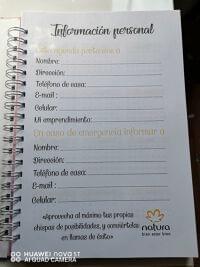 Información personal
Esta agenda pertenece a
Nombre:
Dirección:
Teléfono de casa:
E-mail :
Celular:
Mi emprendimiento:
En caso de emergencia informar a
Nombre:
Dirección:
Teléfono de casa:
E-mail :
Celular:
«Aprovecha al máximo tus propias
chispas de posibilidades, y conviértelas
en llamas de éxito»
natura
bien estar bien
HUAWEI nova 5T
AI QUAD CAMERA